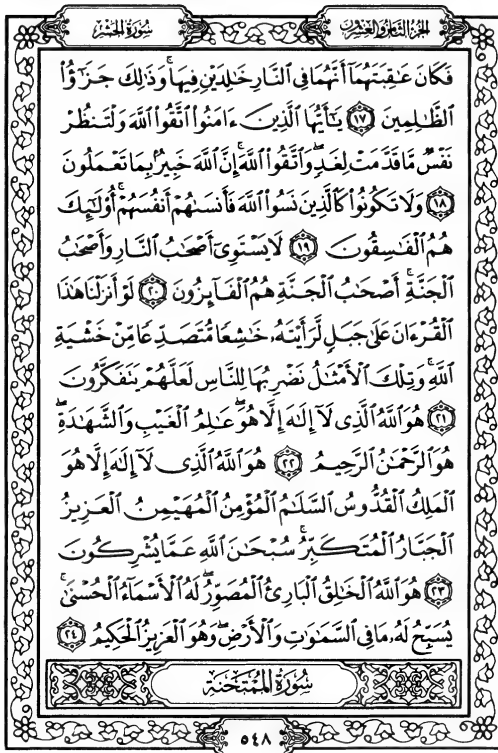 الجزء الثامن والعشرون
سورة الحشر
فَكَانَ عَـٰقِبَتَهُمَآ أَنَّهُمَا فِى ٱلنَّارِ خَـٰلِدَيْنِ فِيهَا ۚ وَذَٰلِكَ جَزَٰٓؤُا۟
ٱلظَّـٰلِمِينَ ١٧ يَـٰٓأَيُّهَا ٱلَّذِينَ ءَامَنُوا۟ ٱتَّقُوا۟ ٱللَّهَ وَلْتَنظُرْ
نَفْسٌ مَّا قَدَّمَتْ لِغَدٍ ۖ وَٱتَّقُوا۟ ٱللَّهَ ۚ إِنَّ ٱللَّهَ خَبِيرٌۢ بِمَا تَعْمَلُونَ
١٨ وَلَا تَكُونُوا۟ كَٱلَّذِينَ نَسُوا۟ ٱللَّهَ فَأَنسَىٰهُمْ أَنفُسَهُمْ ۚ أُو۟لَـٰٓئِكَ
هُمُ ٱلْفَـٰسِقُونَ ١٩ لَا يَسْتَوِىٓ أَصْحَـٰبُ ٱلنَّارِ وَأَصْحَـٰبُ
ٱلْجَنَّةِ ۚ أَصْحَـٰبُ ٱلْجَنَّةِ هُمُ ٱلْفَآئِزُونَ ٢٠ لَوْ أَنزَلْنَا هَـٰذَا
ٱلْقُرْءَانَ عَلَىٰ جَبَلٍ لَّرَأَيْتَهُۥ خَـٰشِعًا مُّتَصَدِّعًا مِّنْ خَشْيَةِ
ٱللَّهِ ۚ وَتِلْكَ ٱلْأَمْثَـٰلُ نَضْرِبُهَا لِلنَّاسِ لَعَلَّهُمْ يَتَفَكَّرُونَ
٢١ هُوَ ٱللَّهُ ٱلَّذِى لَآ إِلَـٰهَ إِلَّا هُوَ ۖ عَـٰلِمُ ٱلْغَيْبِ وَٱلشَّهَـٰدَةِ ۖ
هُوَ ٱلرَّحْمَـٰنُ ٱلرَّحِيمُ ٢٢ هُوَ ٱللَّهُ ٱلَّذِى لَآ إِلَـٰهَ إِلَّا هُوَ
ٱلْمَلِكُ ٱلْقُدُّوسُ ٱلسَّلَـٰمُ ٱلْمُؤْمِنُ ٱلْمُهَيْمِنُ ٱلْعَزِيزُ
ٱلْجَبَّارُ ٱلْمُتَكَبِّرُ ۚ سُبْحَـٰنَ ٱللَّهِ عَمَّا يُشْرِكُونَ
٢٣ هُوَ ٱللَّهُ ٱلْخَـٰلِقُ ٱلْبَارِئُ ٱلْمُصَوِّرُ ۖ لَهُ ٱلْأَسْمَآءُ ٱلْحُسْنَىٰ ۚ
يُسَبِّحُ لَهُۥ مَا فِى ٱلسَّمَـٰوَٰتِ وَٱلْأَرْضِ ۖ وَهُوَ ٱلْعَزِيزُ ٱلْحَكِيمُ ٢٤
سورة الممتحنة
٥٤٨